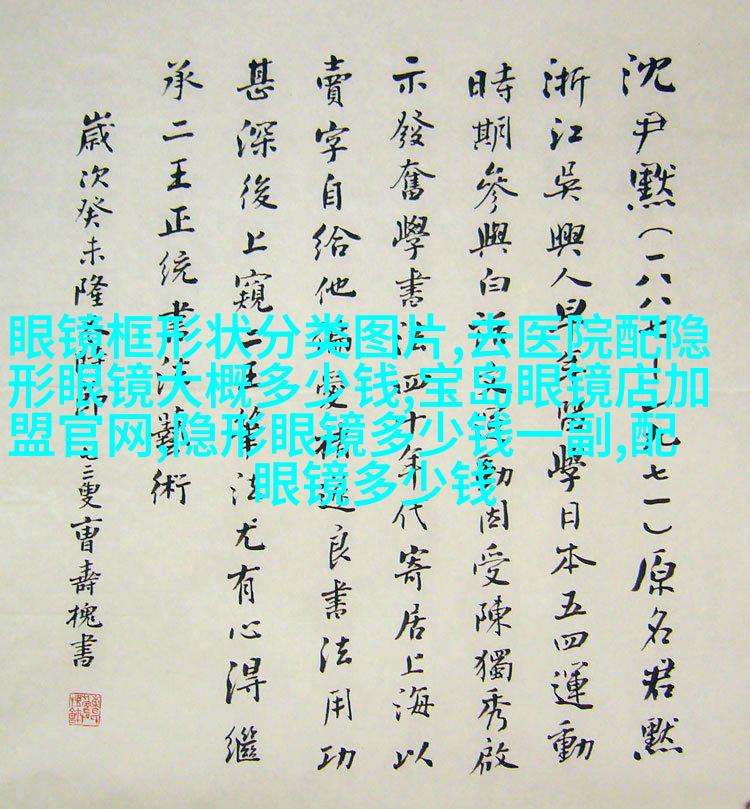 沈尹默(一八八七—一九七一)原名君默
浙江吳興人早年留學日本五四運動
時期參與白話文運動因受陳獨秀啟
示發奮學書法四十年代寄居上海以
賣字自給他偏愛褚遂良書法用功
甚深後上窺二王筆法尤有心得繼
承二王正統書法藝術
歲次癸未隆冬叟曹壽槐書
眼镜框形状分类图片,去医院配隐
形眼镜大概多少钱,宝岛眼镜店加
盟官网,隐形眼镜多少钱一副,配
眼镜多少钱